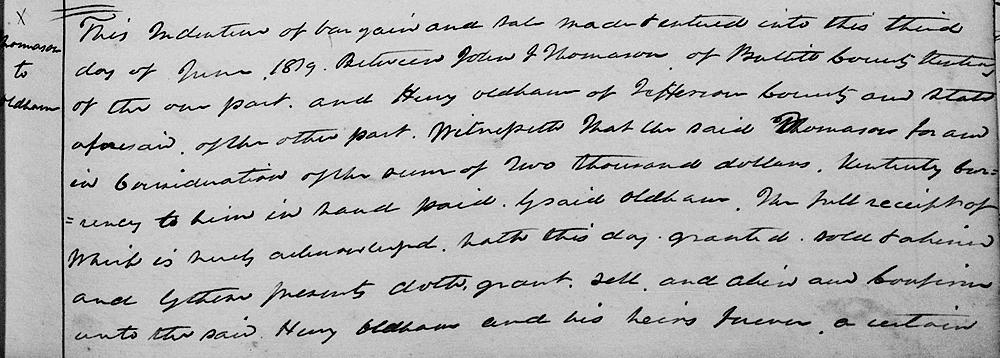 X
Thomason
to
Oldham
This Indenture of bargain and sale made & entered into this third
day of June 1819. Between John J Thomason, of Bullitt County Kentucky
of the one part. and Henry oldham of Jefferson County and State
aforesaid, of the other part. Witnesseth That the said Thomason for and
in Consideration of the sum of Two thousand dollars, Kentucky Cur=
=rency to him in hand paid. by said Oldham, The full receipt of
Which is hereby acknowledged. hath this day. granted. sold & aliened
and by these presents doth, grant. sell. and alien and Confirm
unto the said Henry Oldham and his heirs forever, a certain